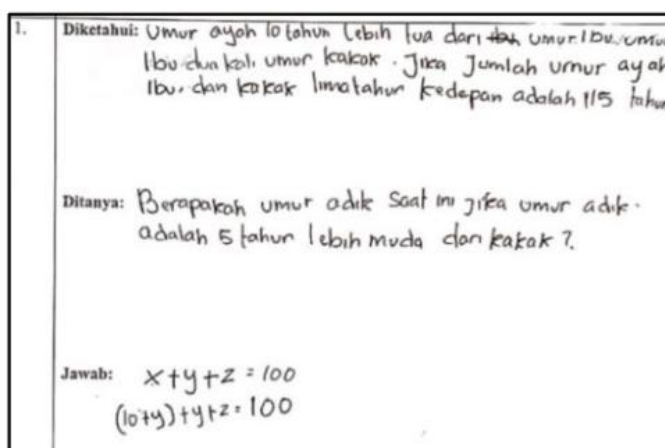 1. Diketahui: Umur ayah 10 tahun lebih tua dari umur Ibu. umur
Ibu dua kali umur kakak. Jika Jumlah umur ayah
Ibu, dan kakak lima tahun kedepan adalah 115 tahun
Ditanya: Berapakah umur adik Saat ini jika umur adik
adalah 5 tahun lebih muda dari kakak?
Jawab: x+y+z = 100
(10+y)+y+z = 100